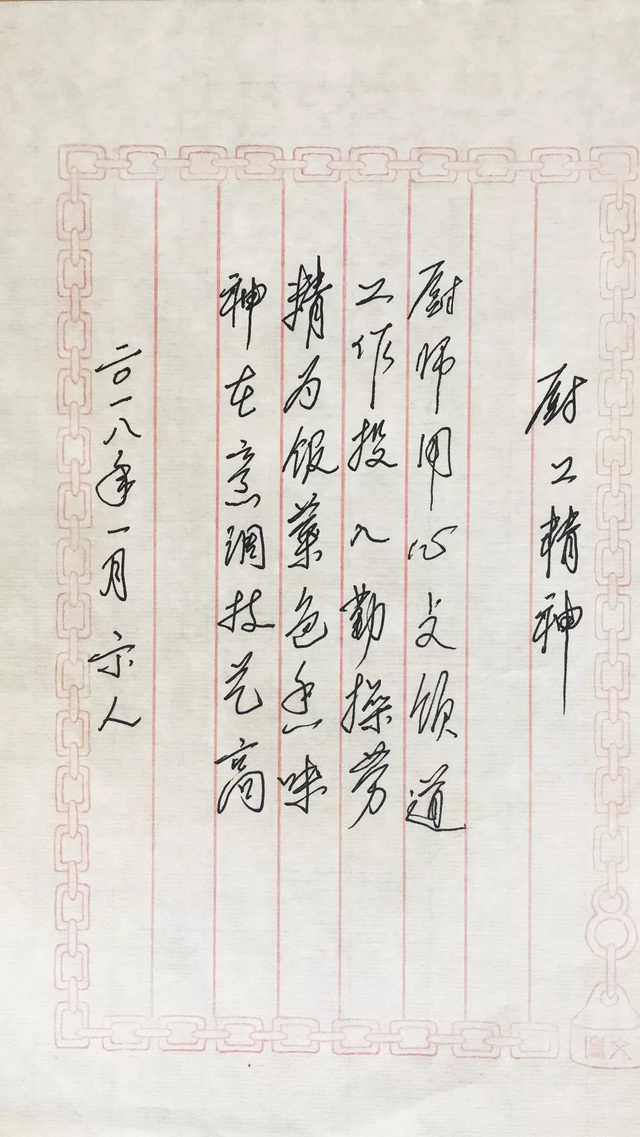 厨工精神
厨师用心领道
工作投入勤操劳
精为饭菜色香味
神在烹调技艺高
二〇一八年一月 宗人